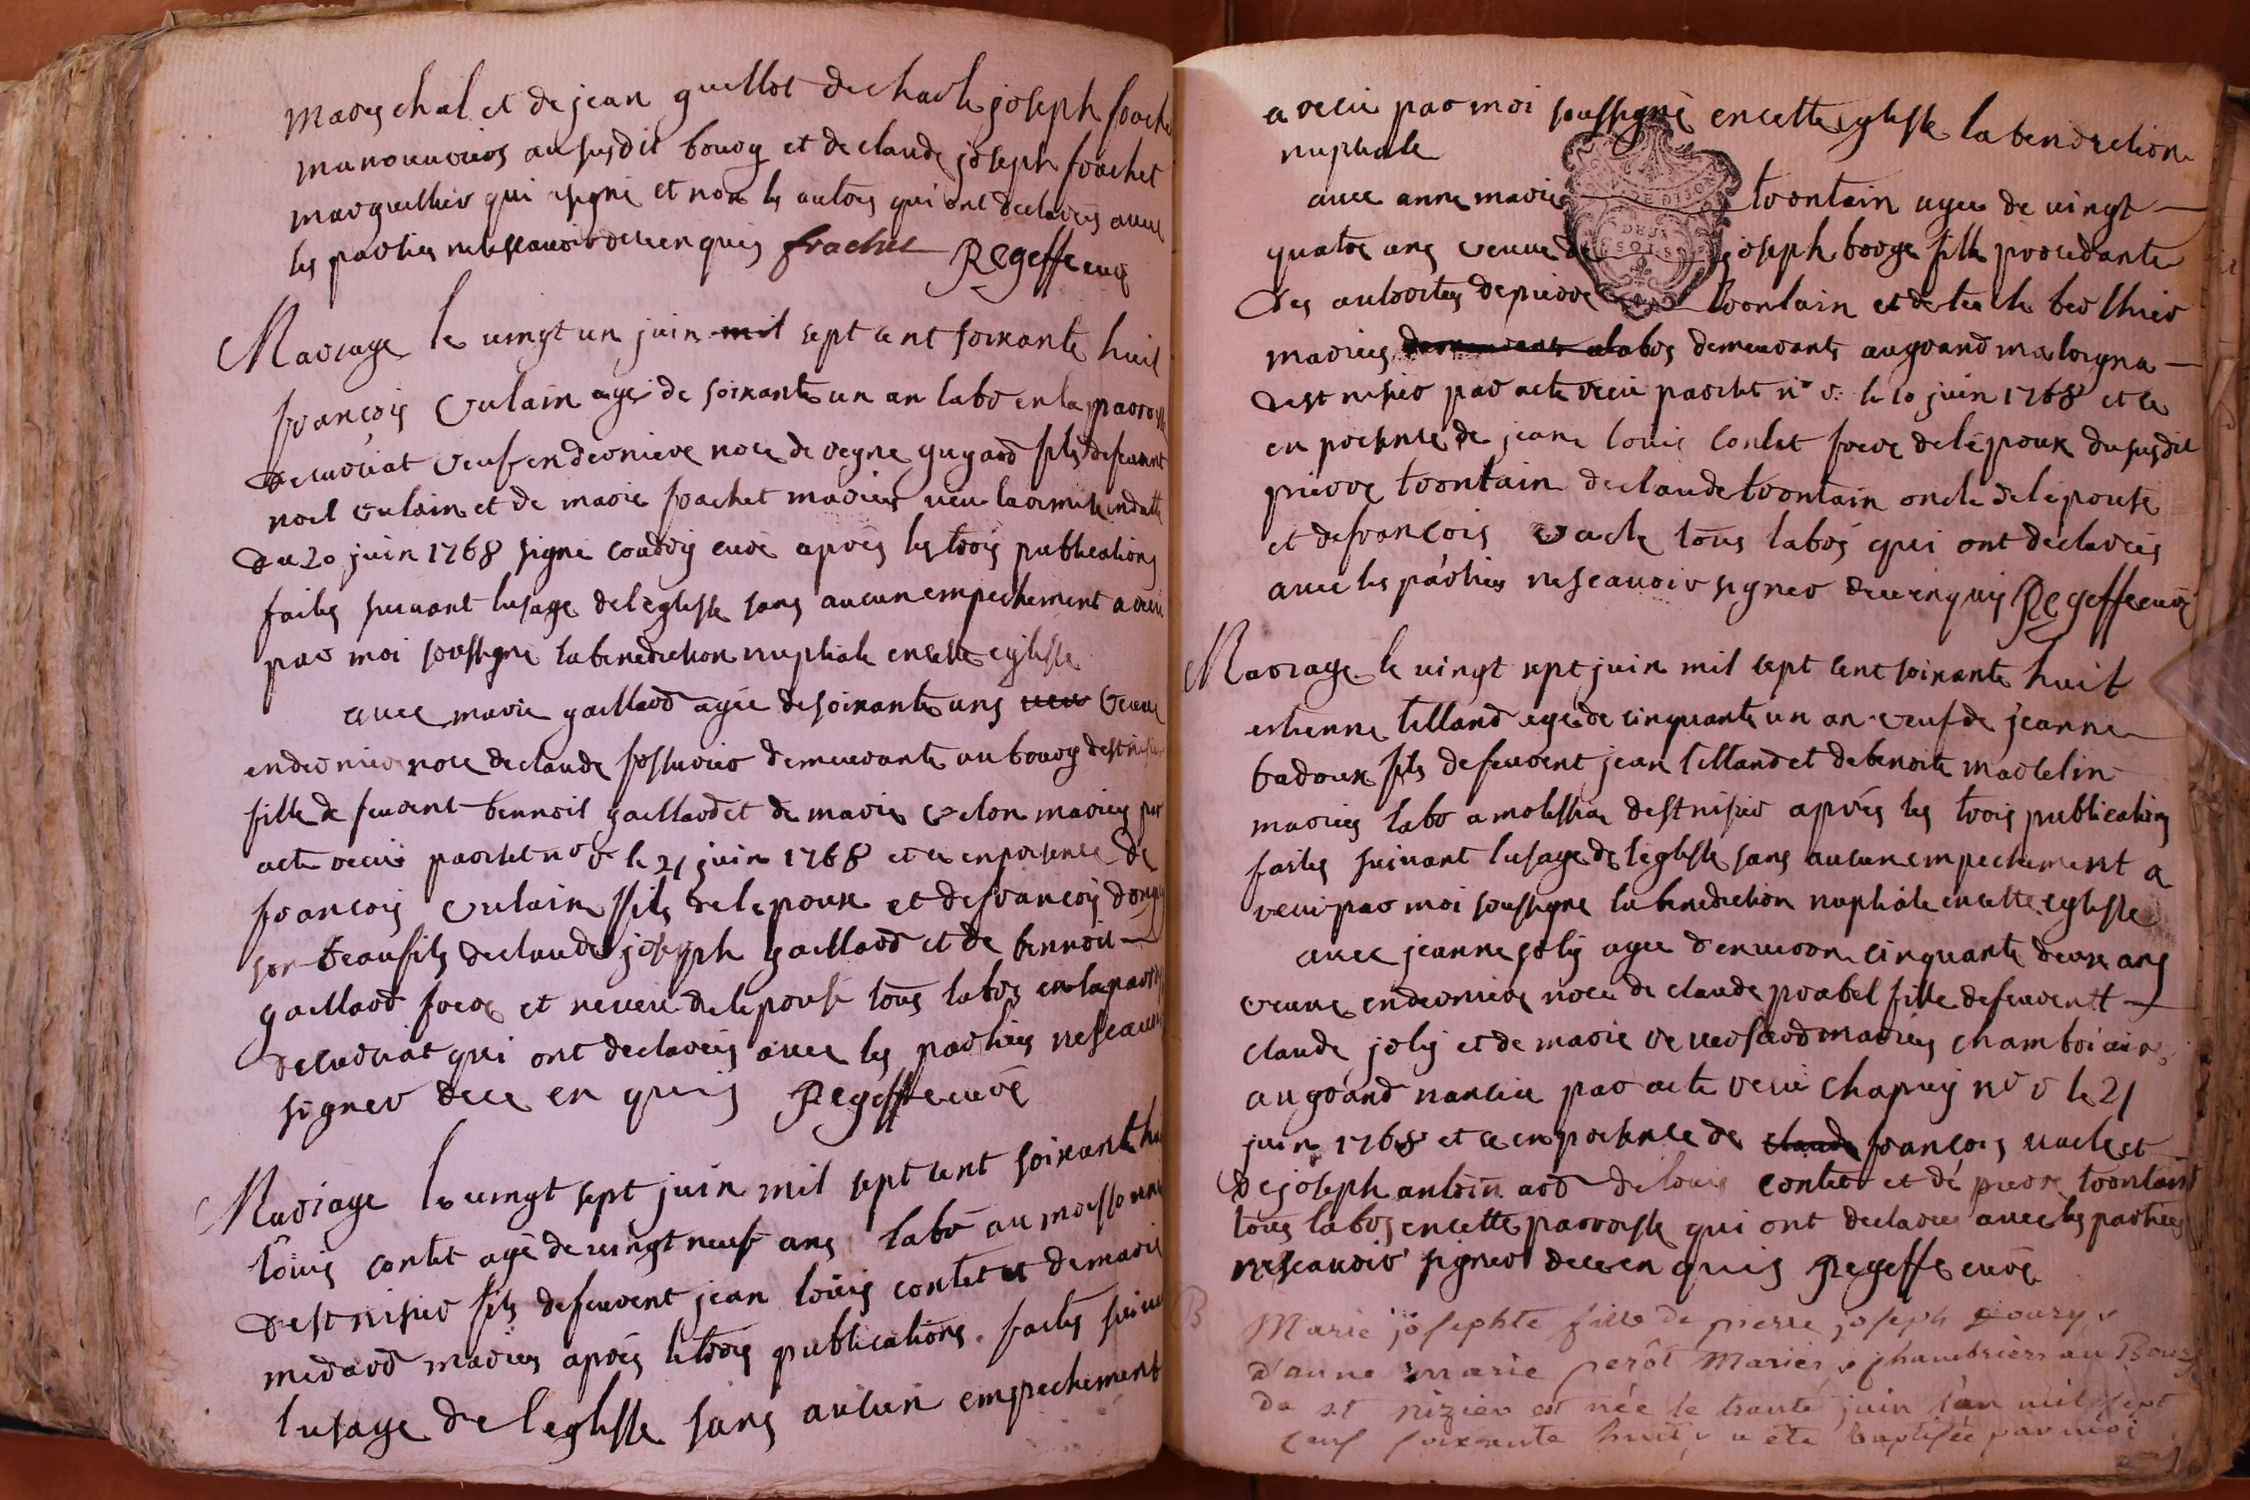 mareschal et de jean guillot de charle joseph frache
manouvriers au susdit bourg et de claude joseph frachet
marguillier qui a signé et non les autres qui ont declarés avec
les parties ne sçavoir de ce enquis frachet Regeffe curé
Mariage le vingt un juin mil sept cent soixante huit
françois vulain agé de soixante un an labr en la parroisse
de curciat veuf en derniere noce de reyne guyard fils de feuvent
noel vulain et de marie frachet mariés veu la remise en datte
du 20 juin 1768 signé coudry curé aprés les trois publications
faites suivant lusage de léglisse sans aucun empechement a recu
par moi soussigné la benediction nuptiale en cette eglisse
avec marie gaillard agée de soixante ans veu veuve
en derniere noce de claude demeurante au bourg de st nisier
fille de feuvent bennoit gaillard et de marie velon mariés par
acte recu parchet nre r. le 21 juin 1768 et ce en presence de
françois vulain fils de lepoux et de françois
son beaufils de claude joseph gaillard et de bennoit
gaillard frere et neveu de lepouse tous labrs en la parroisse
de curciat qui ont declarés avec les parties ne sçavoir
signer de ce en quis Regeffe curé
Mariage le vingt sept juin mil sept cent soixante hu
loüis contet agé de vingt neuf ans labr au moissonne
de st nisier fils de feuvent jean loüis contet et de marie
midard mariés aprés les trois publications faites suiva
lusage de leglisse sans aucun empechement
a recu par moi soussigné en cette eglisse la benediction
nuptiale
avec anne marie trontain agée de vingt
quatre ans veuve de joseph borge fille procedante
des authorités de pierre trontain et de thecle berthier
mariés labrs demeurants au grand maloigna
de st nisier par acte recu parchet nre r. le 20 juin 1768 et ce
en presence de jean louis contet frere de lépoux du susdit
pierre trontain de claude trontain oncle de lépouse
et de françois vacle tous labrs qui ont declarés
avec les parties ne sçavoir signer de ce enquis Regeffe curé
Mariage le vingt sept juin mil sept cent soixante huit
estienne tilland agé de cinquante un an veuf de jeanne
badoux fils de feuvent jean tilland et de benoite martelin
mariés labr a molissia de st nisier aprés les trois publications
faites suivant lusage de léglisse sans aucun empechement a
recu par moi soussigné la benediction nuptiale en cette eglisse
avec jeanne joly agée denviron cinquante deux ans
veuve en derniere noce de claude prabel fille de feuvent
claude joly et de marie mariés
au grand nancuie par acte recu chapuy nre r le 21
juin 1768 et ce en presence de claude françois vacle et
de joseph antoin ard de louis contet et dé pierre trontaint
tous labrs en cette parroisse qui ont declarés avec les parties
ne sçavoir signer de ce en quis Regeffe curé
B Marie josephte fille de pierre joseph
d'anne marie perôt Mariés au Bourg
de st nizier est née le trante juin l'an mil sept
cent soixante huit, a été baptisée par moi